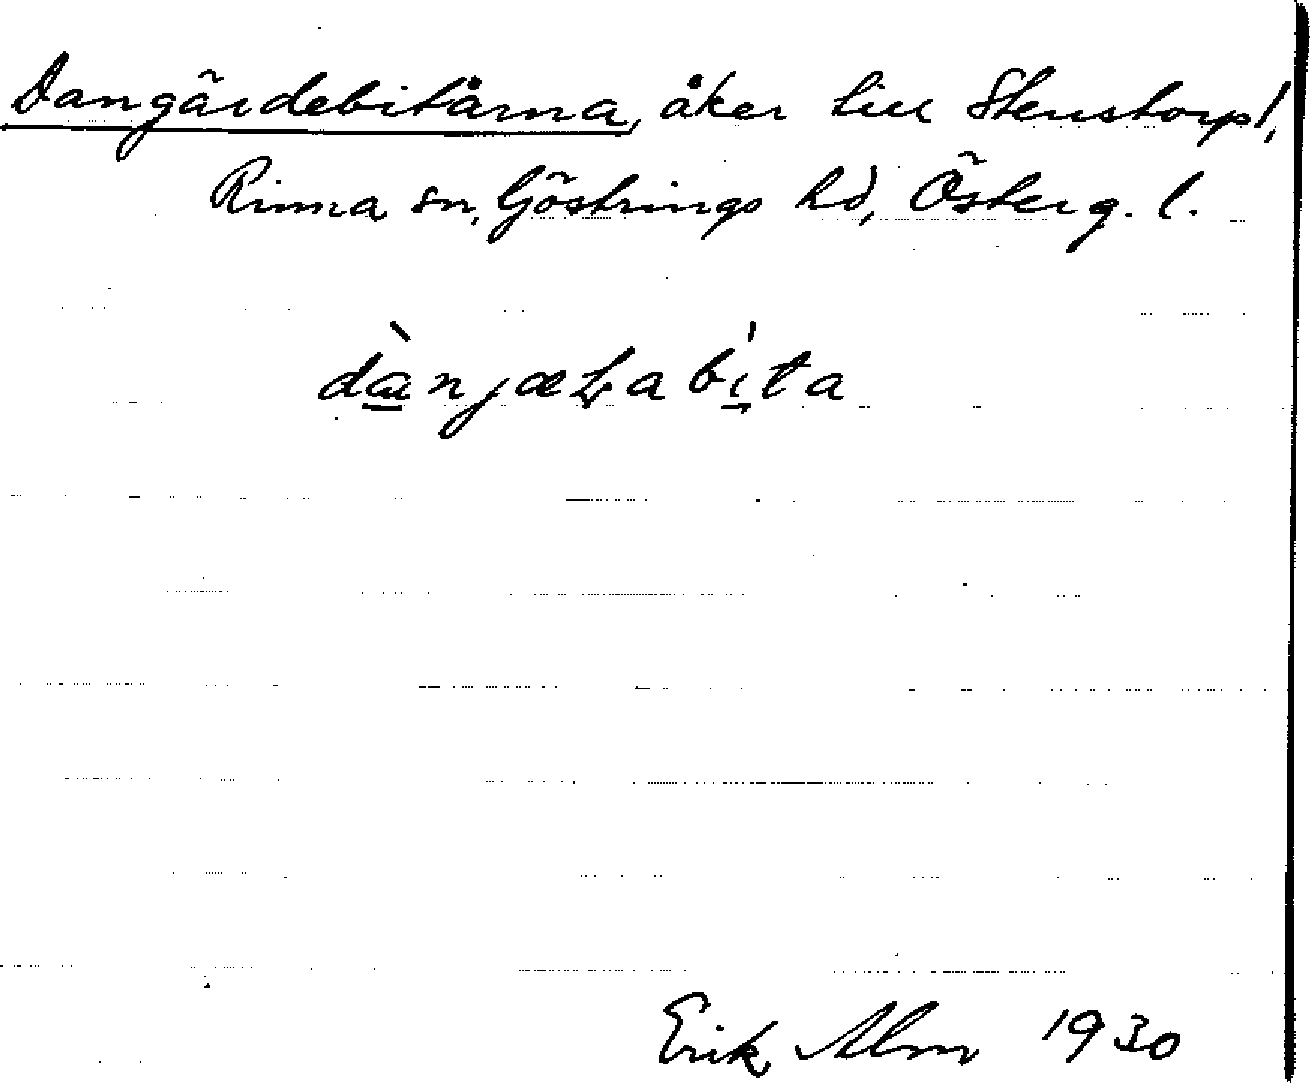 Dangärdebitarna, åker till Stenstorp,
Rinna sn, Göstrings hd, Österg. l.
dànjæɽabíta
Erik Alm 1930